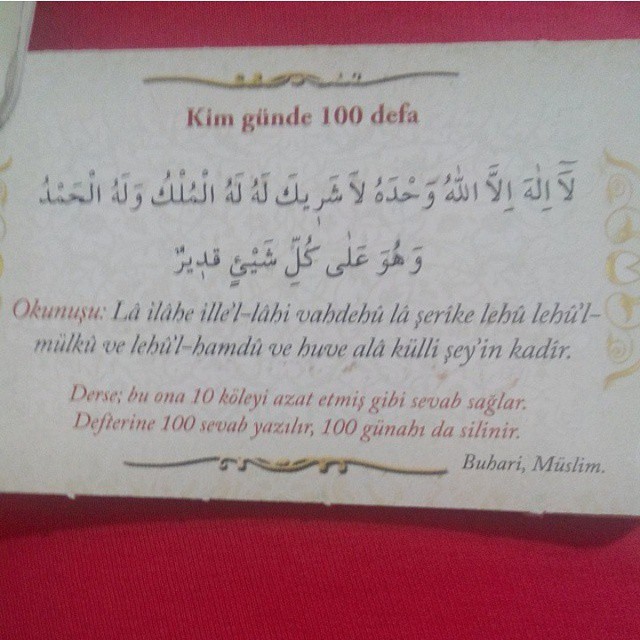 Kim günde 100 defa
لَآ اِلٰهَ اِلَّا اللّٰهُ وَحْدَهُ لاَ شَرِيكَ لَهُ لَهُ الْمُلْكُ وَلَهُ الْحَمْدُ
وَ هُوَ عَلٰى كُلِّ شَيْئٍ قَدِيرٌ
Okunuşu: Lâ ilâhe ille'l-lâhi vahdehû lâ şerîke lehû lehû'l-
mülkü ve lehû'l-hamdü ve huve alâ külli şey'in kadîr.
Derse; bu ona 10 köleyi azat etmiş gibi sevab sağlar.
Defterine 100 sevab yazılır, 100 günahı da silinir.
Buhari, Müslim.